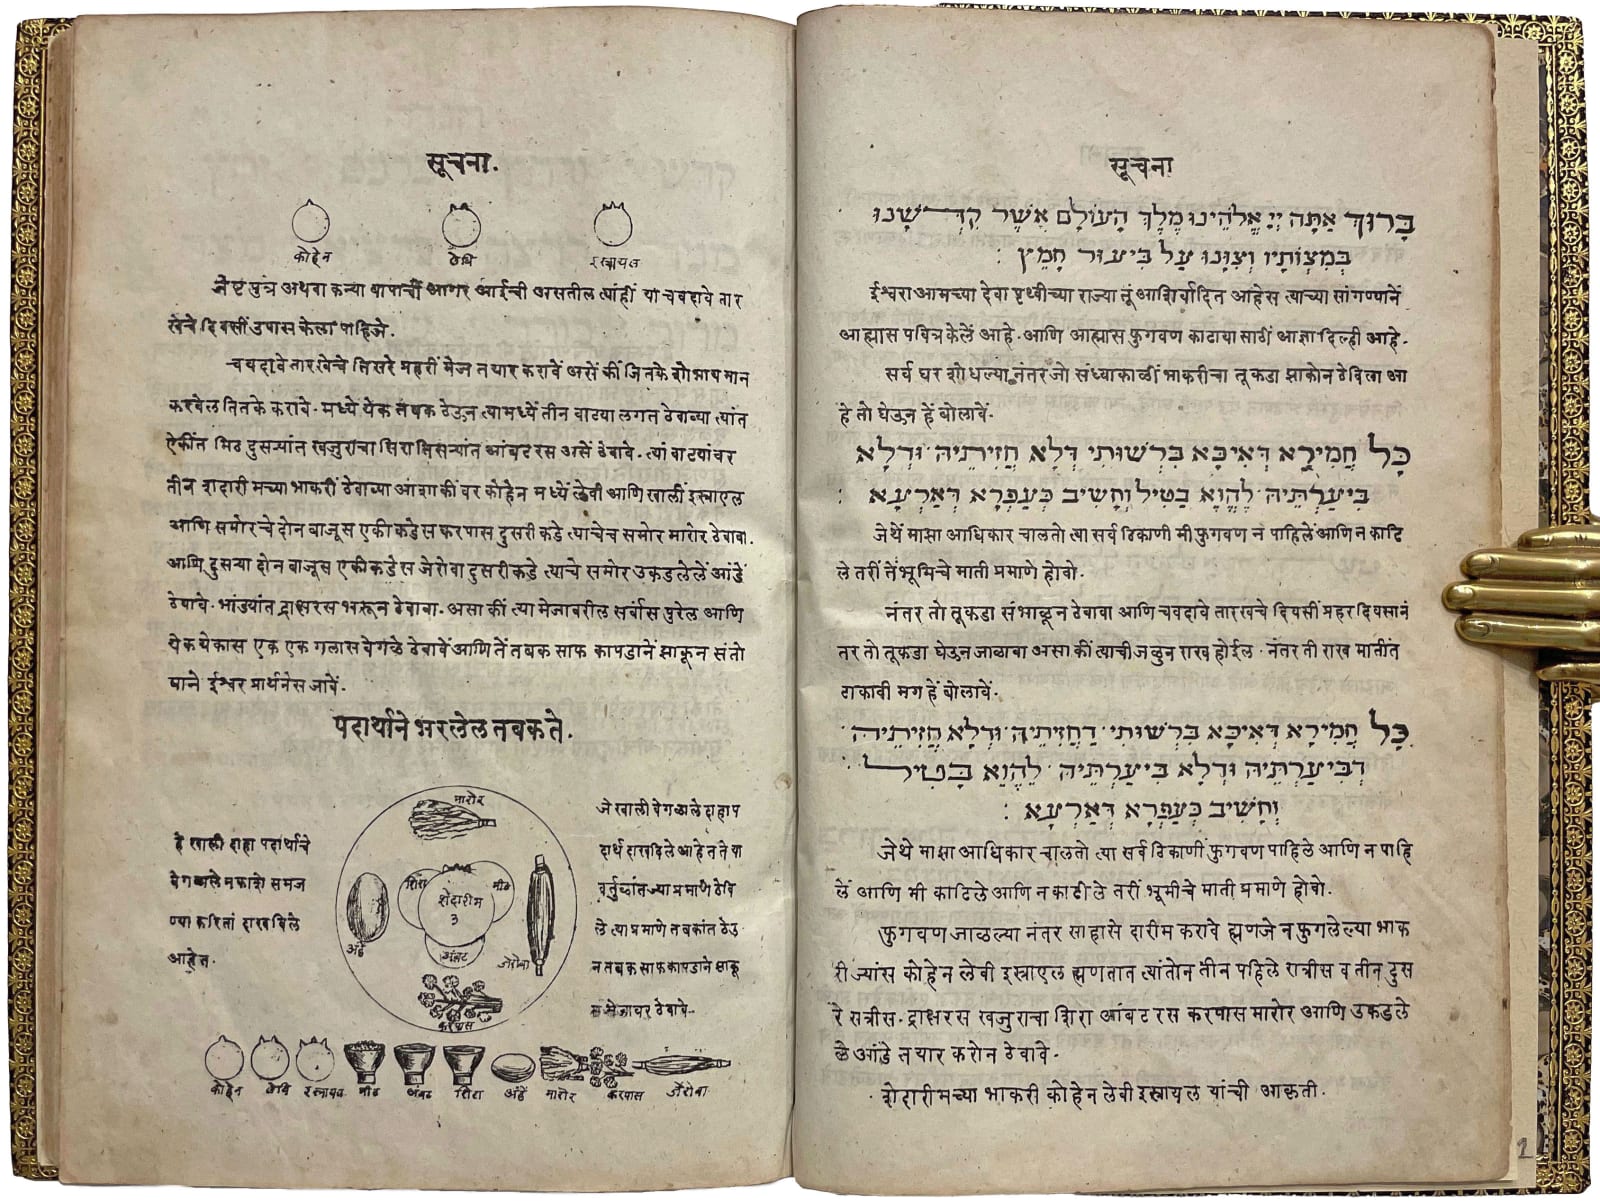 सूचना
בָּרוּךְ אַתָּה יְיָ אֱלֹהֵינוּ מֶלֶךְ הָעוֹלָם אֲשֶׁר קִדְּשָׁנוּ
בְּמִצְוֹתָיו וְצִוָּנוּ עַל בִּיעוּר חָמֵץ :
ईश्वरा आमच्या देवा पृथ्वीच्या राज्या तूं आशिर्वादित आहेस त्याच्या सांगण्यानें
आह्मास पवित्र केलें आहे. आणि आह्मास फुगवण काटाया साठीं आज्ञा दिल्ही आहे.
सर्व घर शोधल्या नंतर जो संध्याकाळीं भाकरीचा तूकडा झाकोन ठेविला आ
हे तो घेऊन हें बोलावें.
כָּל חֲמִירָא דְּאִיכָּא בִּרְשׁוּתִי דְּלָא חֲזִיתֵּיהּ וּדְלָא
בִּיעַרְתֵּיהּ לֶהֱוֵא בַּטִיל וְחָשִׁיב כְּעַפְרָא דְּאַרְעָא :
जेथें माझा आधिकार चालतो त्या सर्व ठिकाणी मी फुगवण न पाहिलें आणि न काटि
ले तरीं तें भूमिचे माती प्रमाणे होवो.
नंतर तो तूकडा संभाळून ठेवावा आणि चवदावे तारखचे दिवसीं प्रहर दिवसानं
तर तो तूकडा घेउन जाळावा असा कीं त्याची जळुन राख होईल. नंतर ती राख मातींत
टाकावी मग हें बोलावें.
כָּל חֲמִירָא דְּאִיכָּא בִּרְשׁוּתִי דַּחֲזִיתֵיהּ וּדְלָא חֲזִיתֵיהּ
דְּבִיעַרְתֵּיהּ וּדְלָא בִּיעַרְתֵּיהּ לֶהֱוֵא בָּטִיל
וְחָשִׁיב כְּעַפְרָא דְּאַרְעָא :
जेथे माझा आधिकार चालतो त्या सर्व ठिकाणीं फुगवण पाहिले आणि न पाहि
लें आणि मी काटिले आणि न काटीले तरीं भूमीचे माती प्रमाणे होवो.
फुगवण जाळल्या नंतर साहासे दारीम करावे ह्मणजे न फुगलेल्या भाक
री ज्यांस कोहेन लेवी इस्राएल ह्मणतात त्यांतोन तीन पहिले रात्रीस व तीन दुस
रे रात्रीस. द्राक्षरस खजुराचा शिरा आंबट रस करपास मारोर आणि उकडले
ले आंडे तयार करोन ठेवावे.
शेदारीमच्या भाकरी कोहेन लेवी इस्रायल यांची आकृती.
1
सूचना.
कोहेन लेवि इस्रायल
जेष्ट पुत्र अथवा कन्या बापाची आगर आईची असतील त्यांहीं या चवदावे तार
खेचे दिवसीं उपास केला पाहिजे.
चवदावे तारखेचे तिसरे प्रहरीं मेज तयार करावें असें कीं जितके शोभायमान
करवेल तितके करावे. मध्ये येक तबक ठेउन त्यामध्यें तीन वाट्या लगत ठेवाव्या त्यांत
ऐकींत मिठ दुसऱ्यांत खजुराचा शिरा तिसऱ्यांत आंबट रस असें ठेवावे. त्यां वाट्यांवर
तीन शेदारी मच्या भाकरीं ठेवाव्या आशा कीं वर कोहेन मध्यें लेवी आणि खालीं इस्राएल
आणि समोरचे दोन बाजूस एकीकडेस करपास दुसरीकडे त्याचेच समोर मारोर ठेवावा.
आणि दुसऱ्या दोन बाजूस एकीकडेस जेरोवा दुसरीकडे त्याचे समोर उकडलेलें आंडें
ठेवावे. भांड्यांत द्राक्षरस भरून ठेवावा. असा कीं त्या मेजावरील सर्वांस पुरेल आणि
येक येकास एक एक गलास वेगळे ठेवावें आणि तें तबक साफ कापडानें झाकून संतो
षाने ईश्वर प्रार्थनेस जावें.
पदार्थाने भरलेल तबक ते.
हे खाली दाहा पदार्थाचे
वेगळाले नकाशे समज
ण्या करितां दाखविले
आहेत.
मारोर
शिरा
मीठ
शेदारीम
३
आंबट
अंडे
जेरोवा
करपास
जे खाली वेगळाले दाहा प
दार्थ दाखविले आहेत ते या
वर्तुळांत ज्या प्रमाणे ठेवि
ले त्या प्रमाणे तबकांत ठेउ
न तबक साफ कापडाने झाकू
न मेजावर ठेवावे.
कोहेन लेवि इस्रायल मीठ आंबट शिरा अंडें मारोर करपास जेरोवा